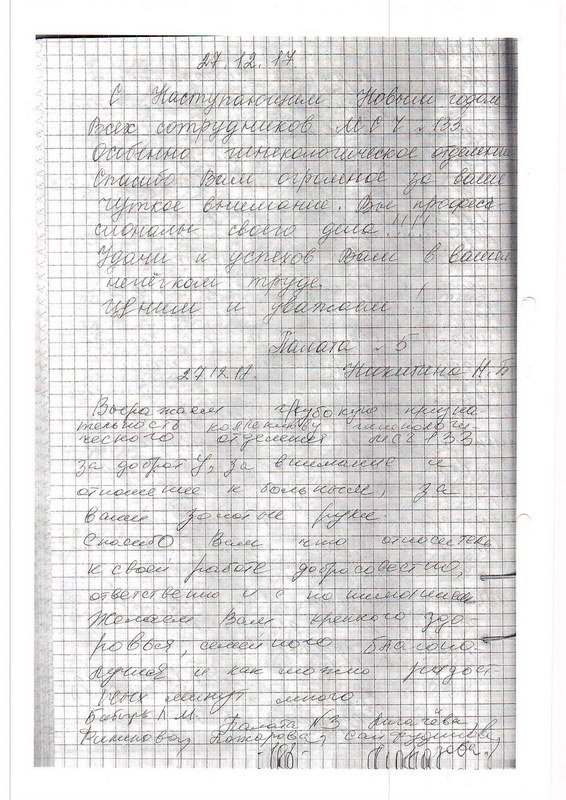 27.12.17
С Наступающим Новым годом
Всех сотрудников МСЧ №133
Особенно гинекологическое отделение
Спасибо Вам огромное за ваше
чуткое внимание. Вы професс-
сионалы своего дела!!!!
Удачи и успехов Вам в вашем
нелёгком труде.
Ценим и уважаем!
Палата №5
27.12.17. Никитина Н.Б
Выражаем глубокую призна
тельность коллективу гинекологи-
ческого отделения МСЧ 133
за доброту, за внимание и
отношение к больным, за
ваши золотые руки.
Спасибо Вам что относитесь
к своей работе добросовестно,
ответственно и с пониманием
Желаем Вам крепкого здо-
ровья, семейного благопо-
лучия и как можно радост
ных минут много
Л.М. Палата №3